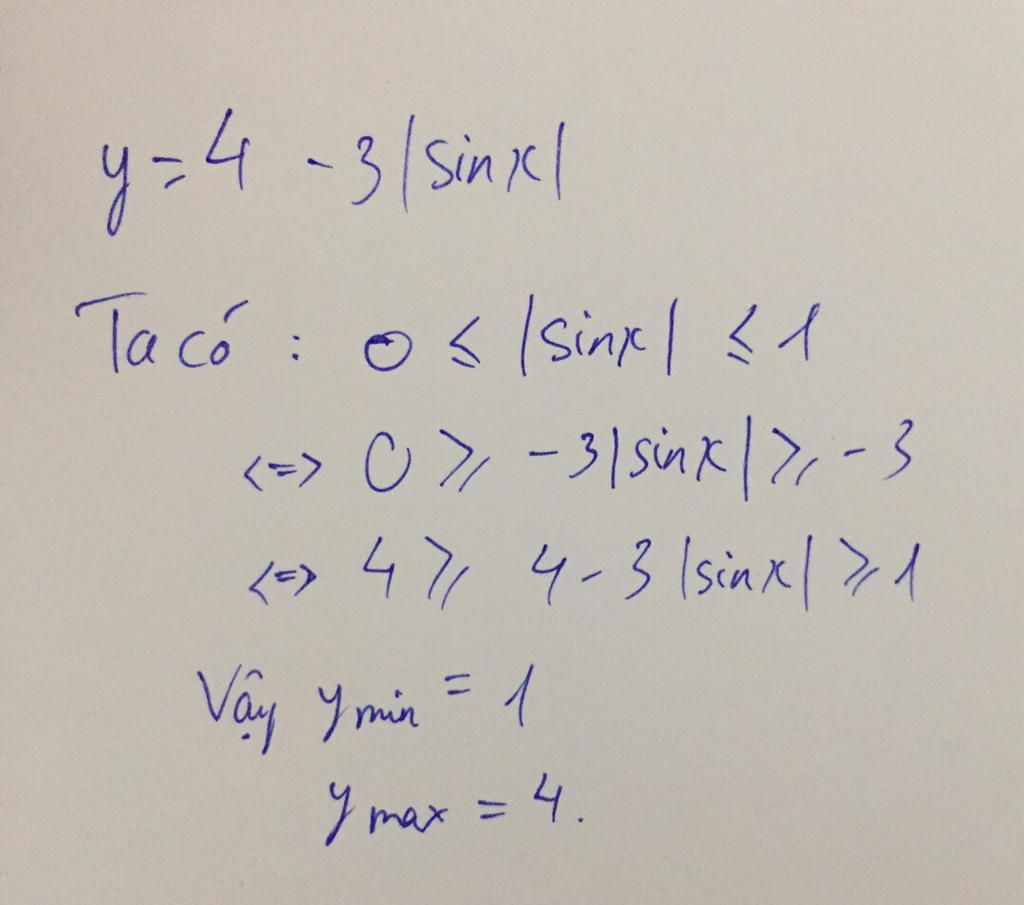 y = 4 - 3|sinx|
Ta có : 0 ≤ |sinx| ≤ 1
<=> 0 ≥ -3|sinx| ≥ -3
<=> 4 ≥ 4 - 3|sinx| ≥ 1
Vậy y min = 1
y max = 4.